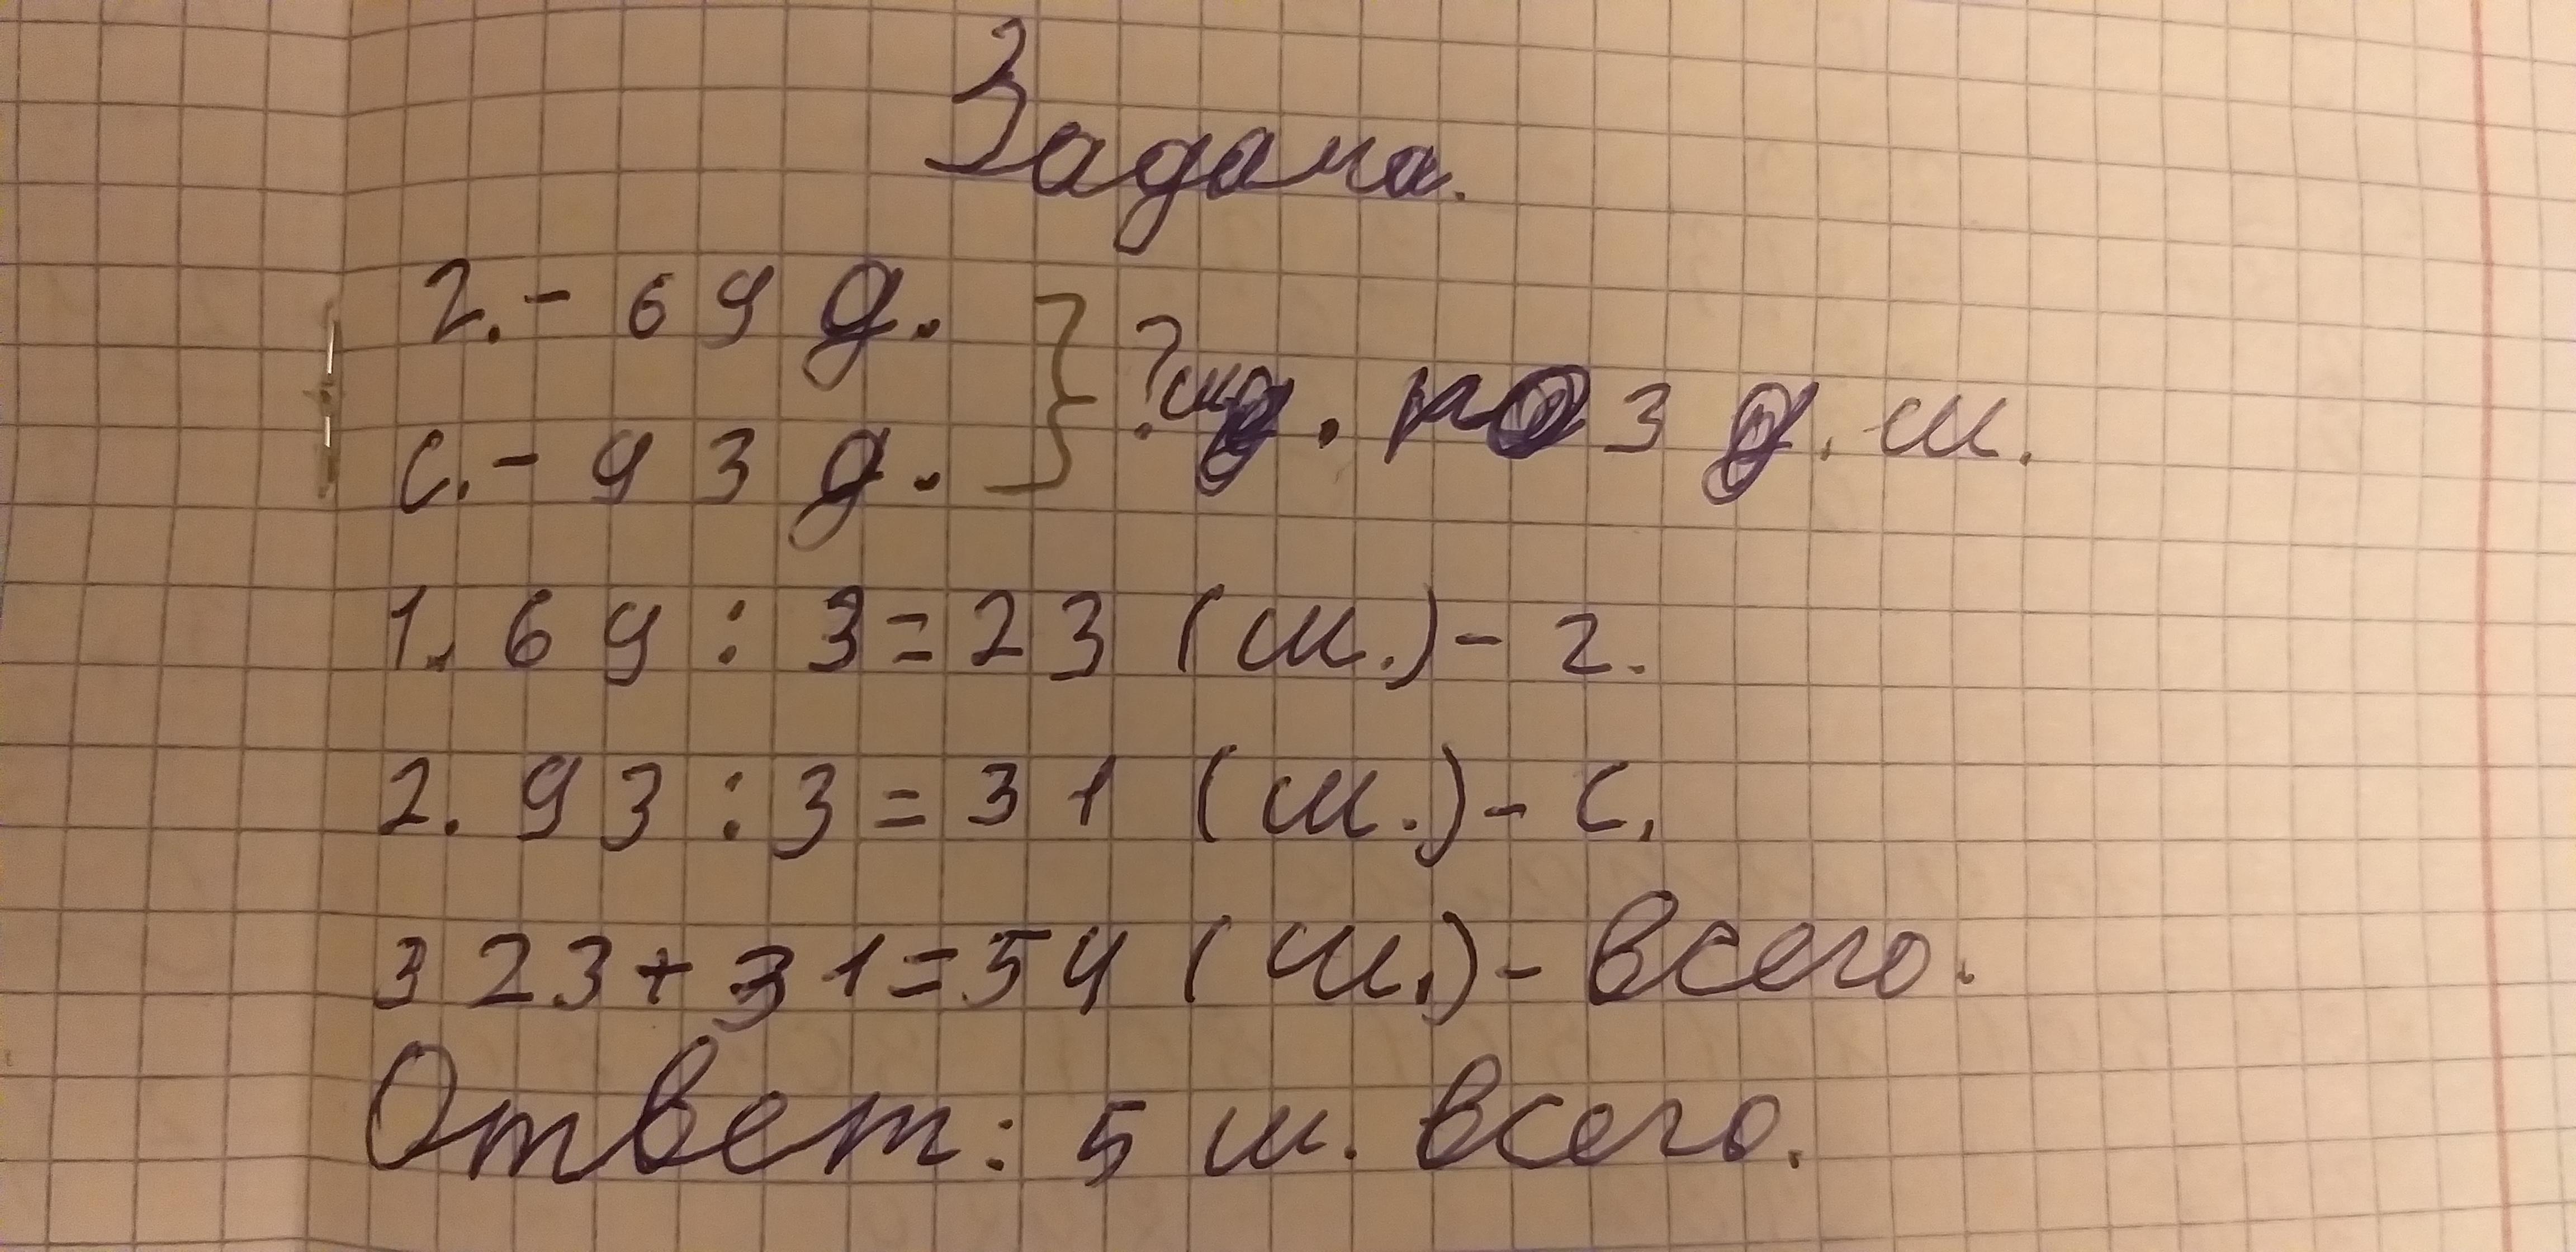 Задача.
г. - 69 д.
? ш. по 3 д. ш.
с. - 93 д.
1. 69 : 3 = 23 (ш.) - г.
2. 93 : 3 = 31 (ш.) - с.
3 23 + 31 = 54 (ш.) - всего.
Ответ: 5 ш. всего.